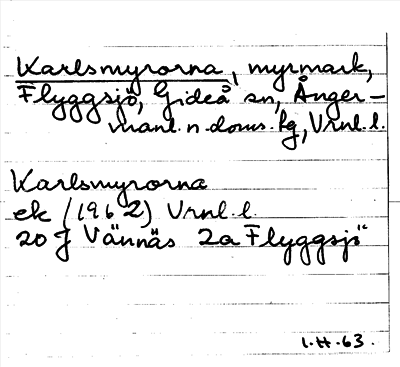 Karlsmyrorna, myrmark,
Flyggsjö, Gideå sn, Ånger-
manl. n. doms. hg, Vrnl. l.
Karlsmyrorna
ek (1962) Vrnl. l.
20 J Vännäs 2a Flyggsjö
1.H.63.